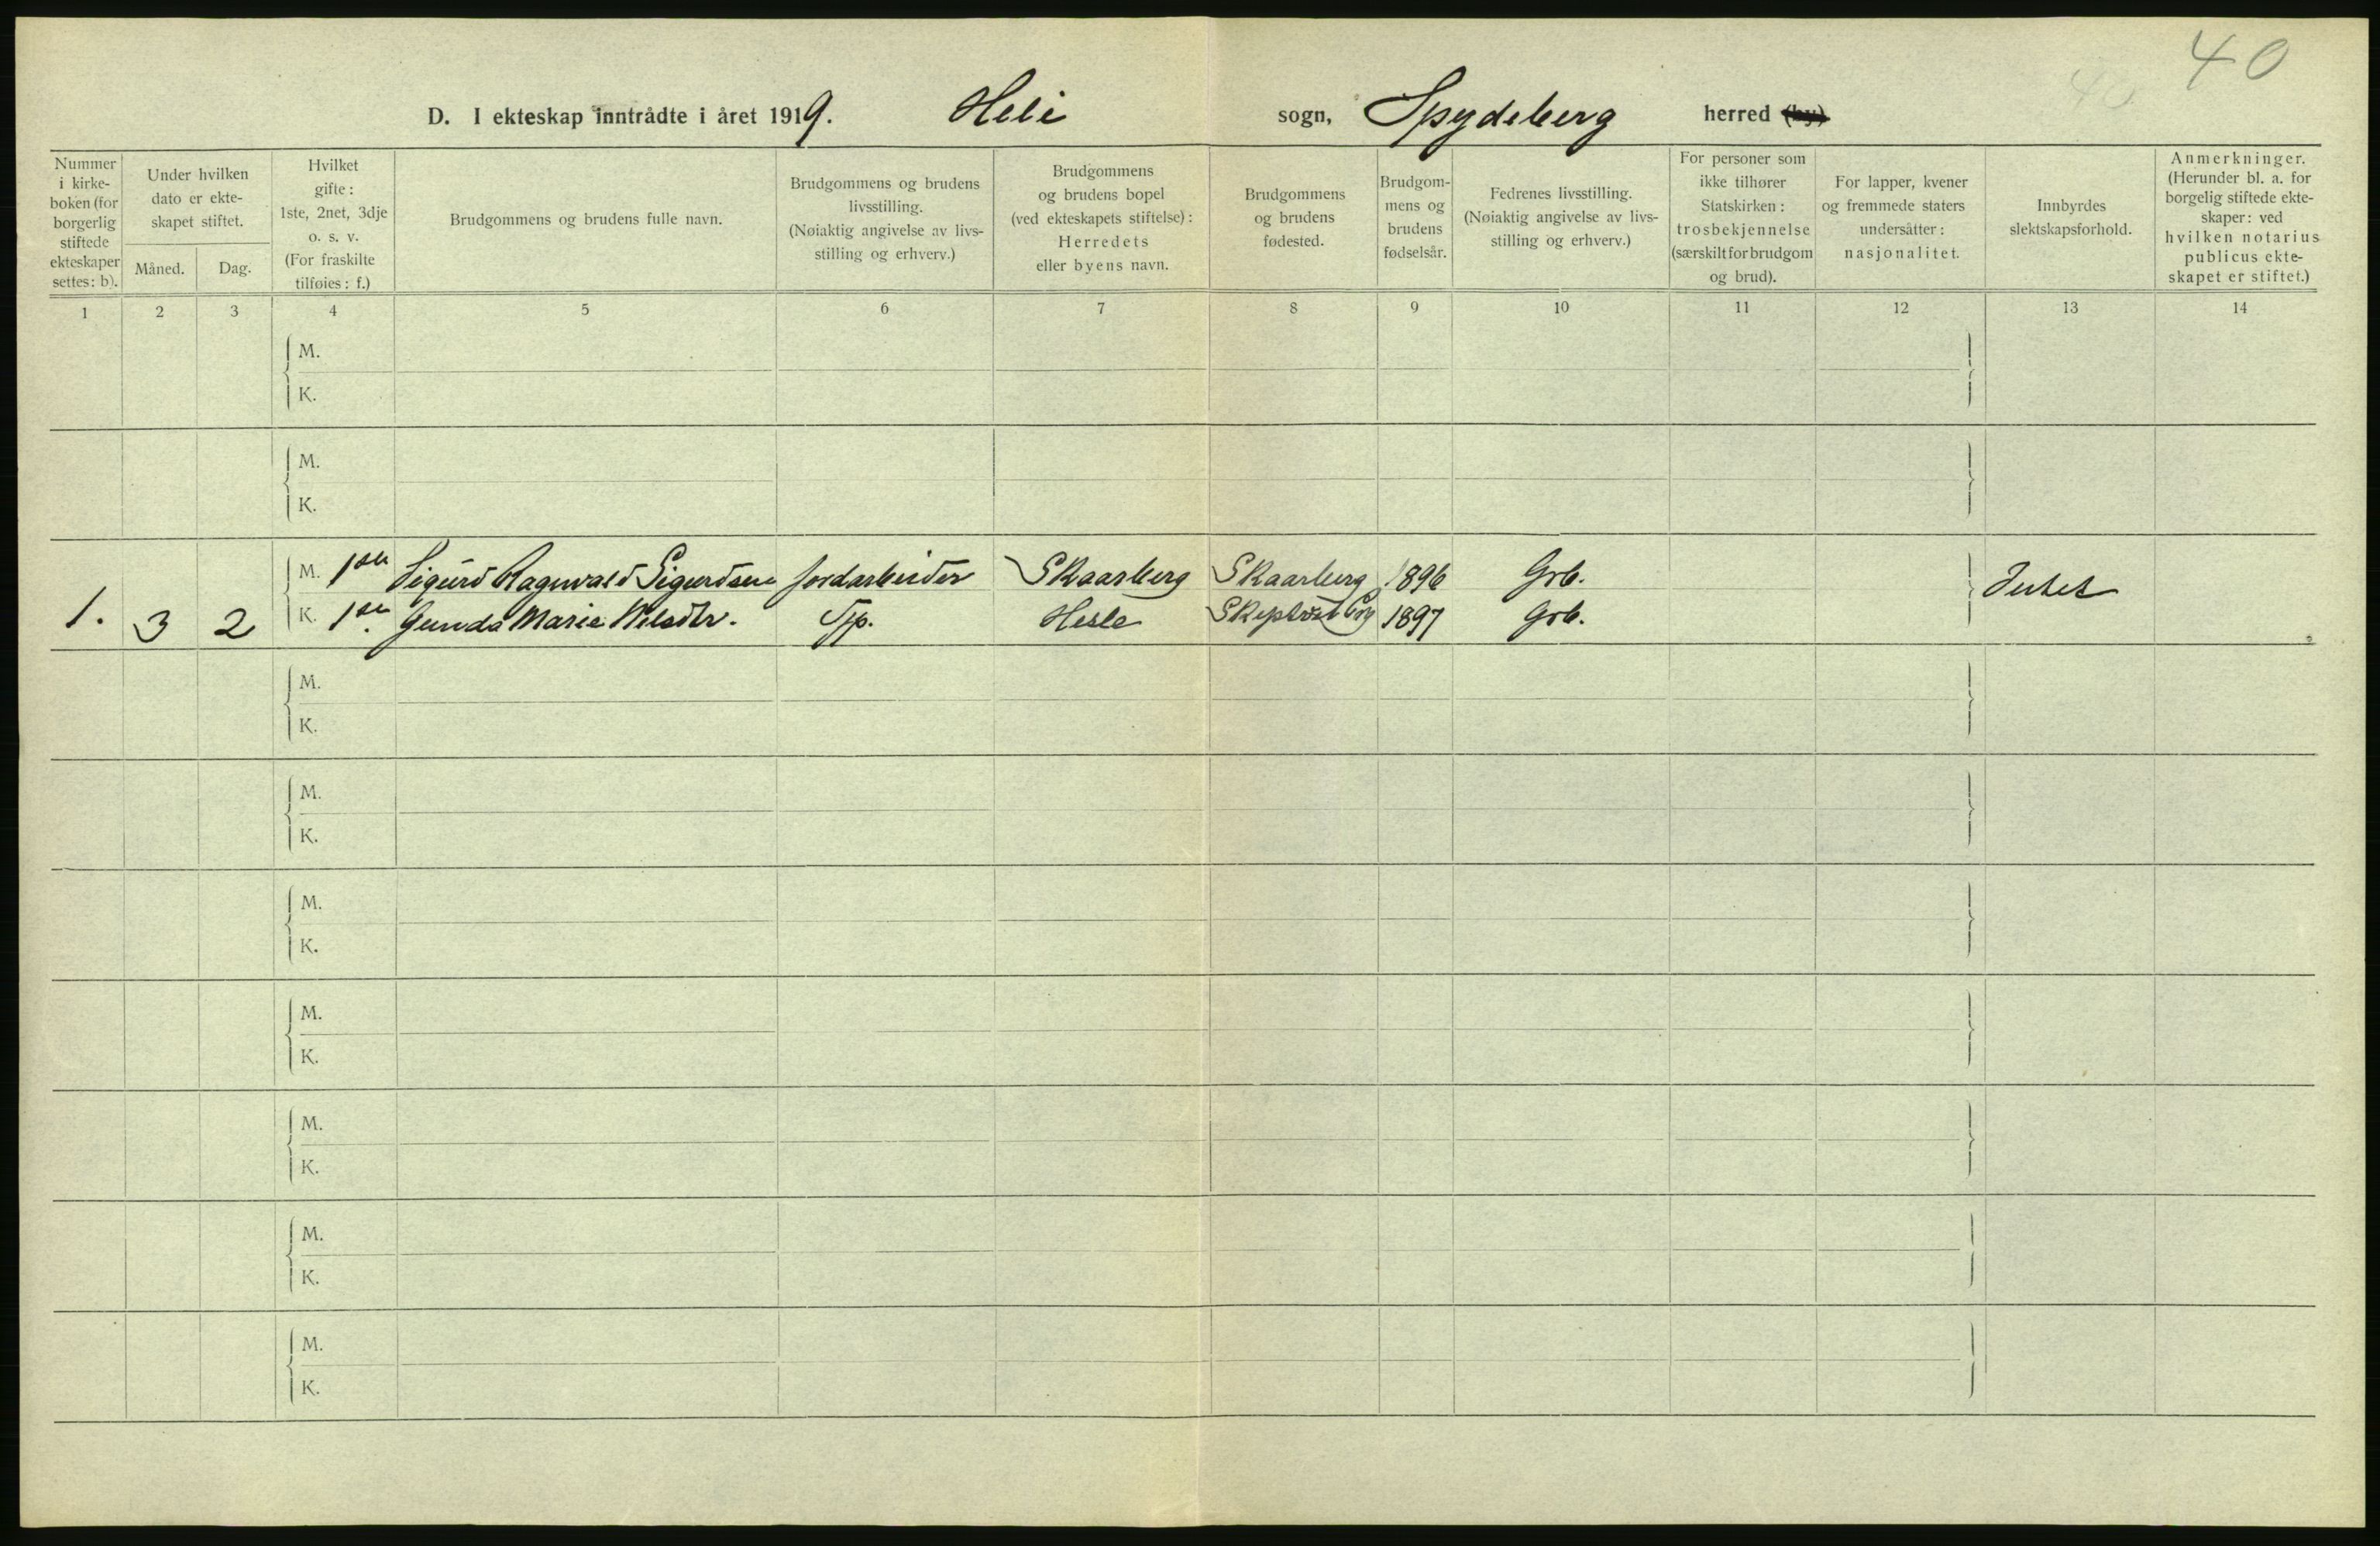 40
D. I ekteskap inntrådte i året 1919. Heli sogn, Spydeberg herred (by)
Nummer i kirkeboken (for borgerlig stiftede ekteskaper settes: b).
Under hvilken dato er ekteskapet stiftet.
Måned.
Dag.
Hvilket gifte: 1ste, 2net, 3dje o. s. v. (For fraskilte tilføies: f.)
Brudgommens og brudens fulle navn.
Brudgommens og brudens livsstilling. (Nøiaktig angivelse av livsstilling og erhverv.)
Brudgommens og brudens bopel (ved ekteskapets stiftelse): Herredets eller byens navn.
Brudgommens og brudens fødested.
Brudgommens og brudens fødselsår.
Fedrenes livsstilling. (Nøiaktig angivelse av livsstilling og erhverv.)
For personer som ikke tilhører Statskirken: trosbekjennelse (særskilt for brudgom og brud).
For lapper, kvener og fremmede staters undersåtter: nasjonalitet.
Innbyrdes slektskapsforhold.
Anmerkninger. (Herunder bl. a. for borgelig stiftede ekteskaper: ved hvilken notarius publicus ekteskapet er stiftet.)
1 2 3 4 5 6 7 8 9 10 11 12 13 14
M.
K.
M.
K.
M. 1ste Sigurd Ragnvald Sigurdsen Jordarbeider Skaarberg Skaarberg 1896 Grb. Intet
1. 3 2 K. 1ste Gunda Marie Nilsdtr. Tjp. Hesle 1897 Grb.
M.
K.
M.
K.
M.
K.
M.
K.
M.
K.
M.
K.
M.
K.